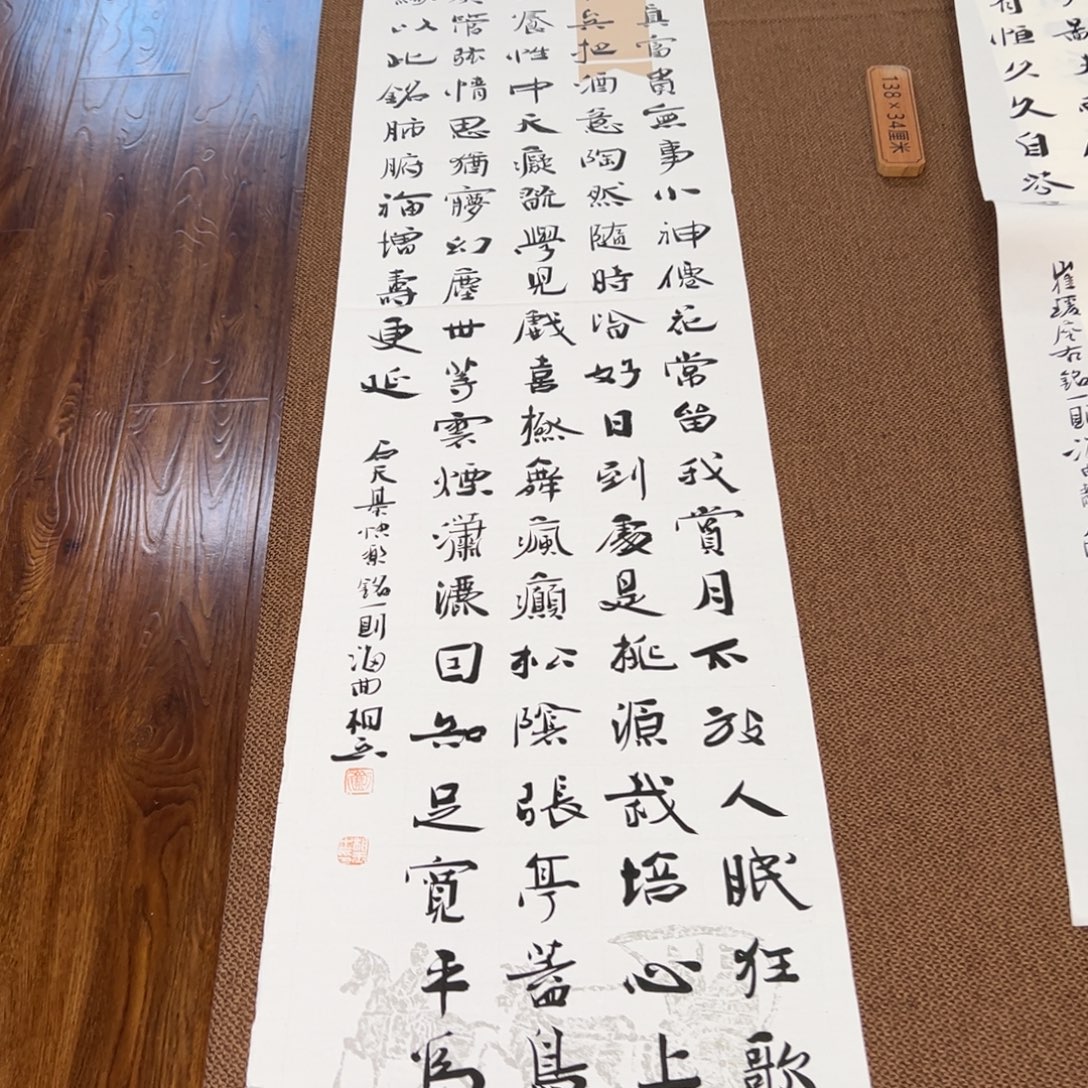 有恒久久自芬
崔瑗座右銘一則
138×34厘米
真富貴無事小神僊花常留我賞月不放人眠狂歌
兵把酒意陶然隨時洽好日到處是桃源栽培心上
養性中天癡疏學兒戲喜極舞瘋癲松陰張亭蓋鳥
管弦情思猶㝱幻塵世等雲煙瀟灑囙知足寬平為
緣以此銘肺腑福增壽更延
石天基快樂銘一則海曲桐